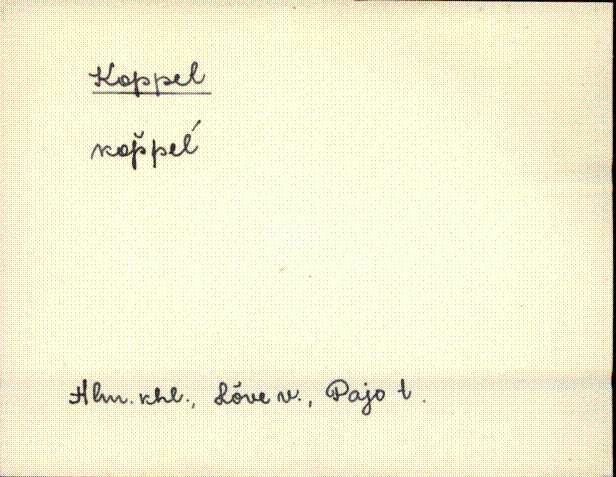 Koppel
kop̆peĺ
Hlm. khl., Lõve v., Pajo t.